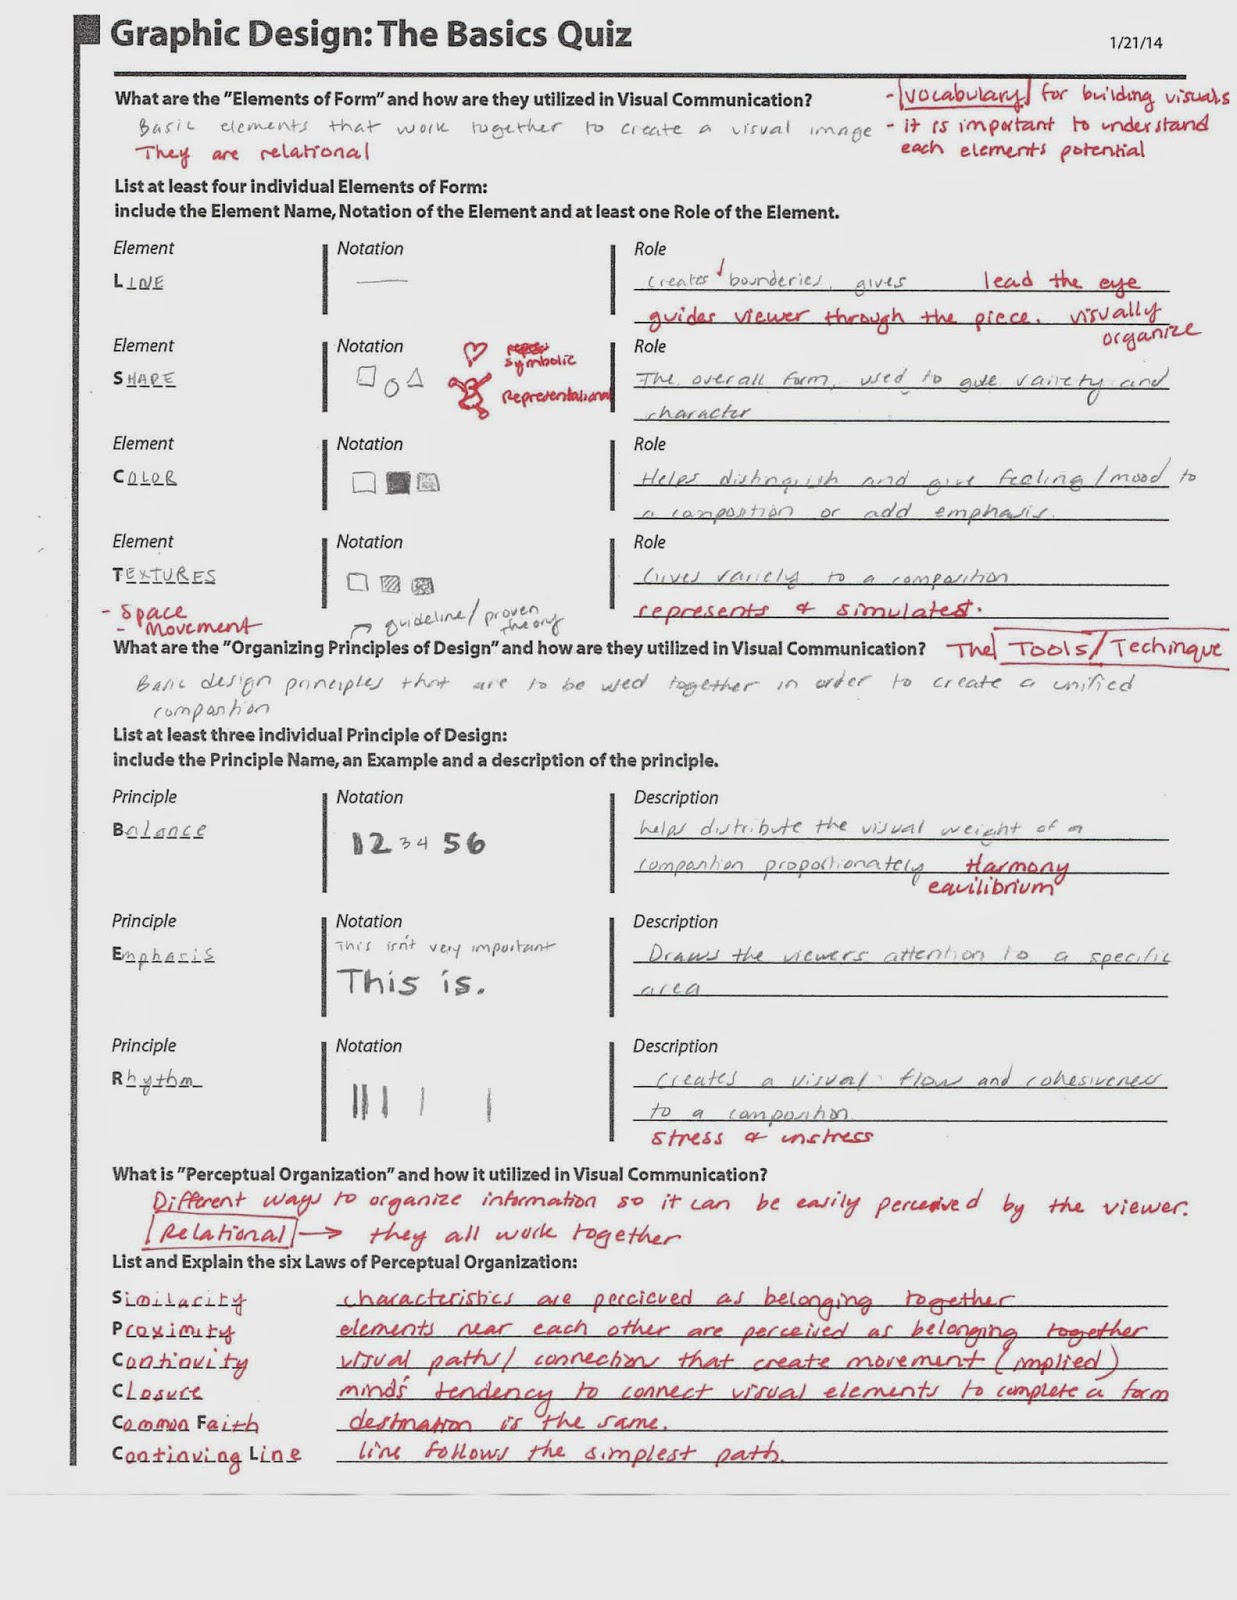 Graphic Design: The Basics Quiz
1/21/14
What are the "Elements of Form" and how are they utilized in Visual Communication?
- vocabulary for building visuals
Basic elements that work together to create a visual image
- it is important to understand
They are relational
each elements potential
List at least four individual Elements of Form:
include the Element Name, Notation of the Element and at least one Role of the Element.
Element Notation Role
LINE creates bounderies, gives lead the eye
guides viewer through the piece. visually
organize
Element Notation Role
symbolic
SHAPE The overall form, used to give vairety and
representational
character
Element Notation Role
COLOR Helps distinquish and give feeling/mood to
a compostion or add emphasis.
Element Notation Role
TEXTURES Gives variety to a composition
- Space represents & simulatest.
- Movement
guideline/proven
theory
What are the "Organizing Principles of Design" and how are they utilized in Visual Communication? The Tools/Techinque
Basic design principles that are to be used together in order to create a unified
compostion
List at least three individual Principle of Design:
include the Principle Name, an Example and a description of the principle.
Principle Notation Description
Balance 12 34 56 helps distribute the visual weight of a
compostion proportionately Harmony
equilibrium
Principle Notation Description
This isn't very important
Emphasis Draws the viewers attention to a specific
This is. area
Principle Notation Description
Rhythm Creates a visual flow and cohesiveness
to a composition
stress & unstress
What is "Perceptual Organization" and how it utilized in Visual Communication?
Different ways to organize information so it can be easily perceived by the viewer.
Relational → they all work together
List and Explain the six Laws of Perceptual Organization:
Similarity characteristics are percieved as belonging together
Proximity elements near each other are perceived as belonging together
Continuity visual paths/connections that create movement (implied)
Closure minds tendency to connect visual elements to complete a form
Common Faith destination is the same.
Continuing Line line follows the simplest path.